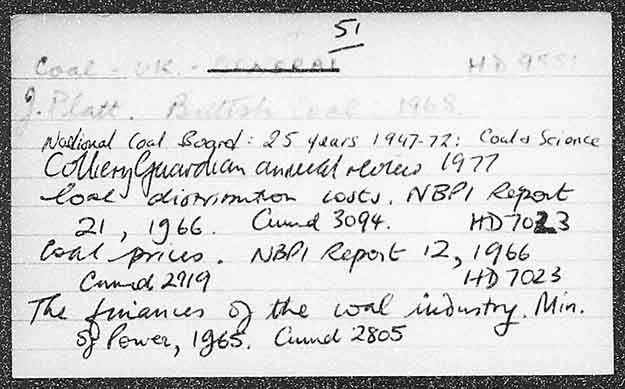 51
Coal - UK. - GENERAL HD 9551
J. Platt. British Coal 1968.
National Coal Board: 25 years 1947-72: Coal & Science
Colliery Guardian annual review 1977
Coal distribution costs. NBPI Report
21, 1966. Cmnd 3094. HD 7023
Coal prices. NBPI Report 12, 1966
Cmnd 2919 HD 7023
The finances of the coal industry. Min.
of Power, 1965. Cmnd 2805